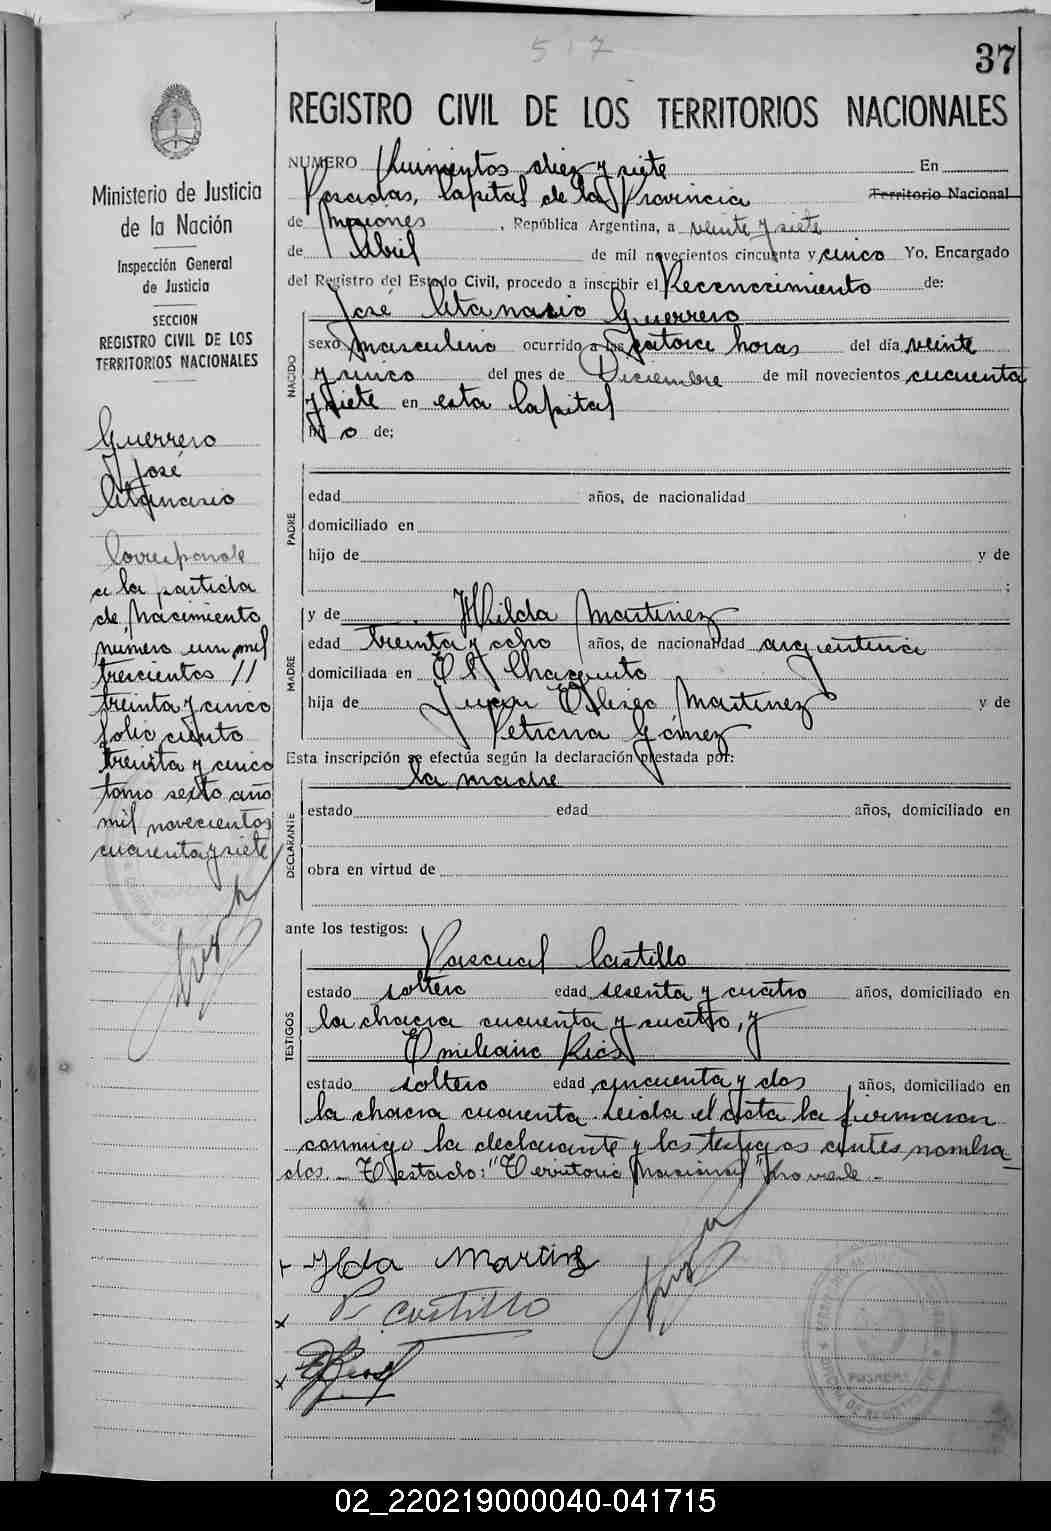 517
37
REGISTRO CIVIL DE LOS TERRITORIOS NACIONALES
Ministerio de Justicia
de la Nación
Inspección General
de Justicia
SECCION
REGISTRO CIVIL DE LOS
TERRITORIOS NACIONALES
Guerrero
José
Atanasio
Corresponde
a la partida
de Nacimiento
número un mil
trescientos //
treinta y cinco
folio ciento
treinta y cinco
tomo sexto año
mil novecientos
cuarenta y siete
NUMERO Quinientos diez y siete En
Posadas, Capital de la Provincia Territorio Nacional
de Misiones, República Argentina, a veinte y siete
de Abril de mil novecientos cincuenta y cinco Yo, Encargado
del Registro del Estado Civil, procedo a inscribir el Reconocimiento de:
José Atanasio Guerrero
NACIDO
sexo masculino ocurrido a las catorce horas del día veinte
y cinco del mes de Diciembre de mil novecientos cuarenta
y siete en esta Capital
hijo de;
PADRE
edad años, de nacionalidad
domiciliado en
hijo de y de
;
MADRE
y de Hilda Martinez
edad treinta y ocho años, de nacionalidad argentina
domiciliada en El Chaquito
hija de Juan Eliseo Martinez y de
Petrona Gómez
Esta inscripción se efectúa según la declaración prestada por:
la madre
DECLARANTE
estado edad años, domiciliado en
obra en virtud de
ante los testigos:
Pascual Castillo
TESTIGOS
estado soltero edad sesenta y cuatro años, domiciliado en
la chacra cuarenta y cuatro, y
Emiliano Rios
estado soltero edad cincuenta y dos años, domiciliado en
la chacra cuarenta. Leida el acta la firmaron
conmigo la declarante y los testigos antes nombra-
dos. - Testado: "Territorio Nacional" No vale. -
Ilda Martinz
P. Castillo
E Rios
POSADAS
02_220219000040-041715